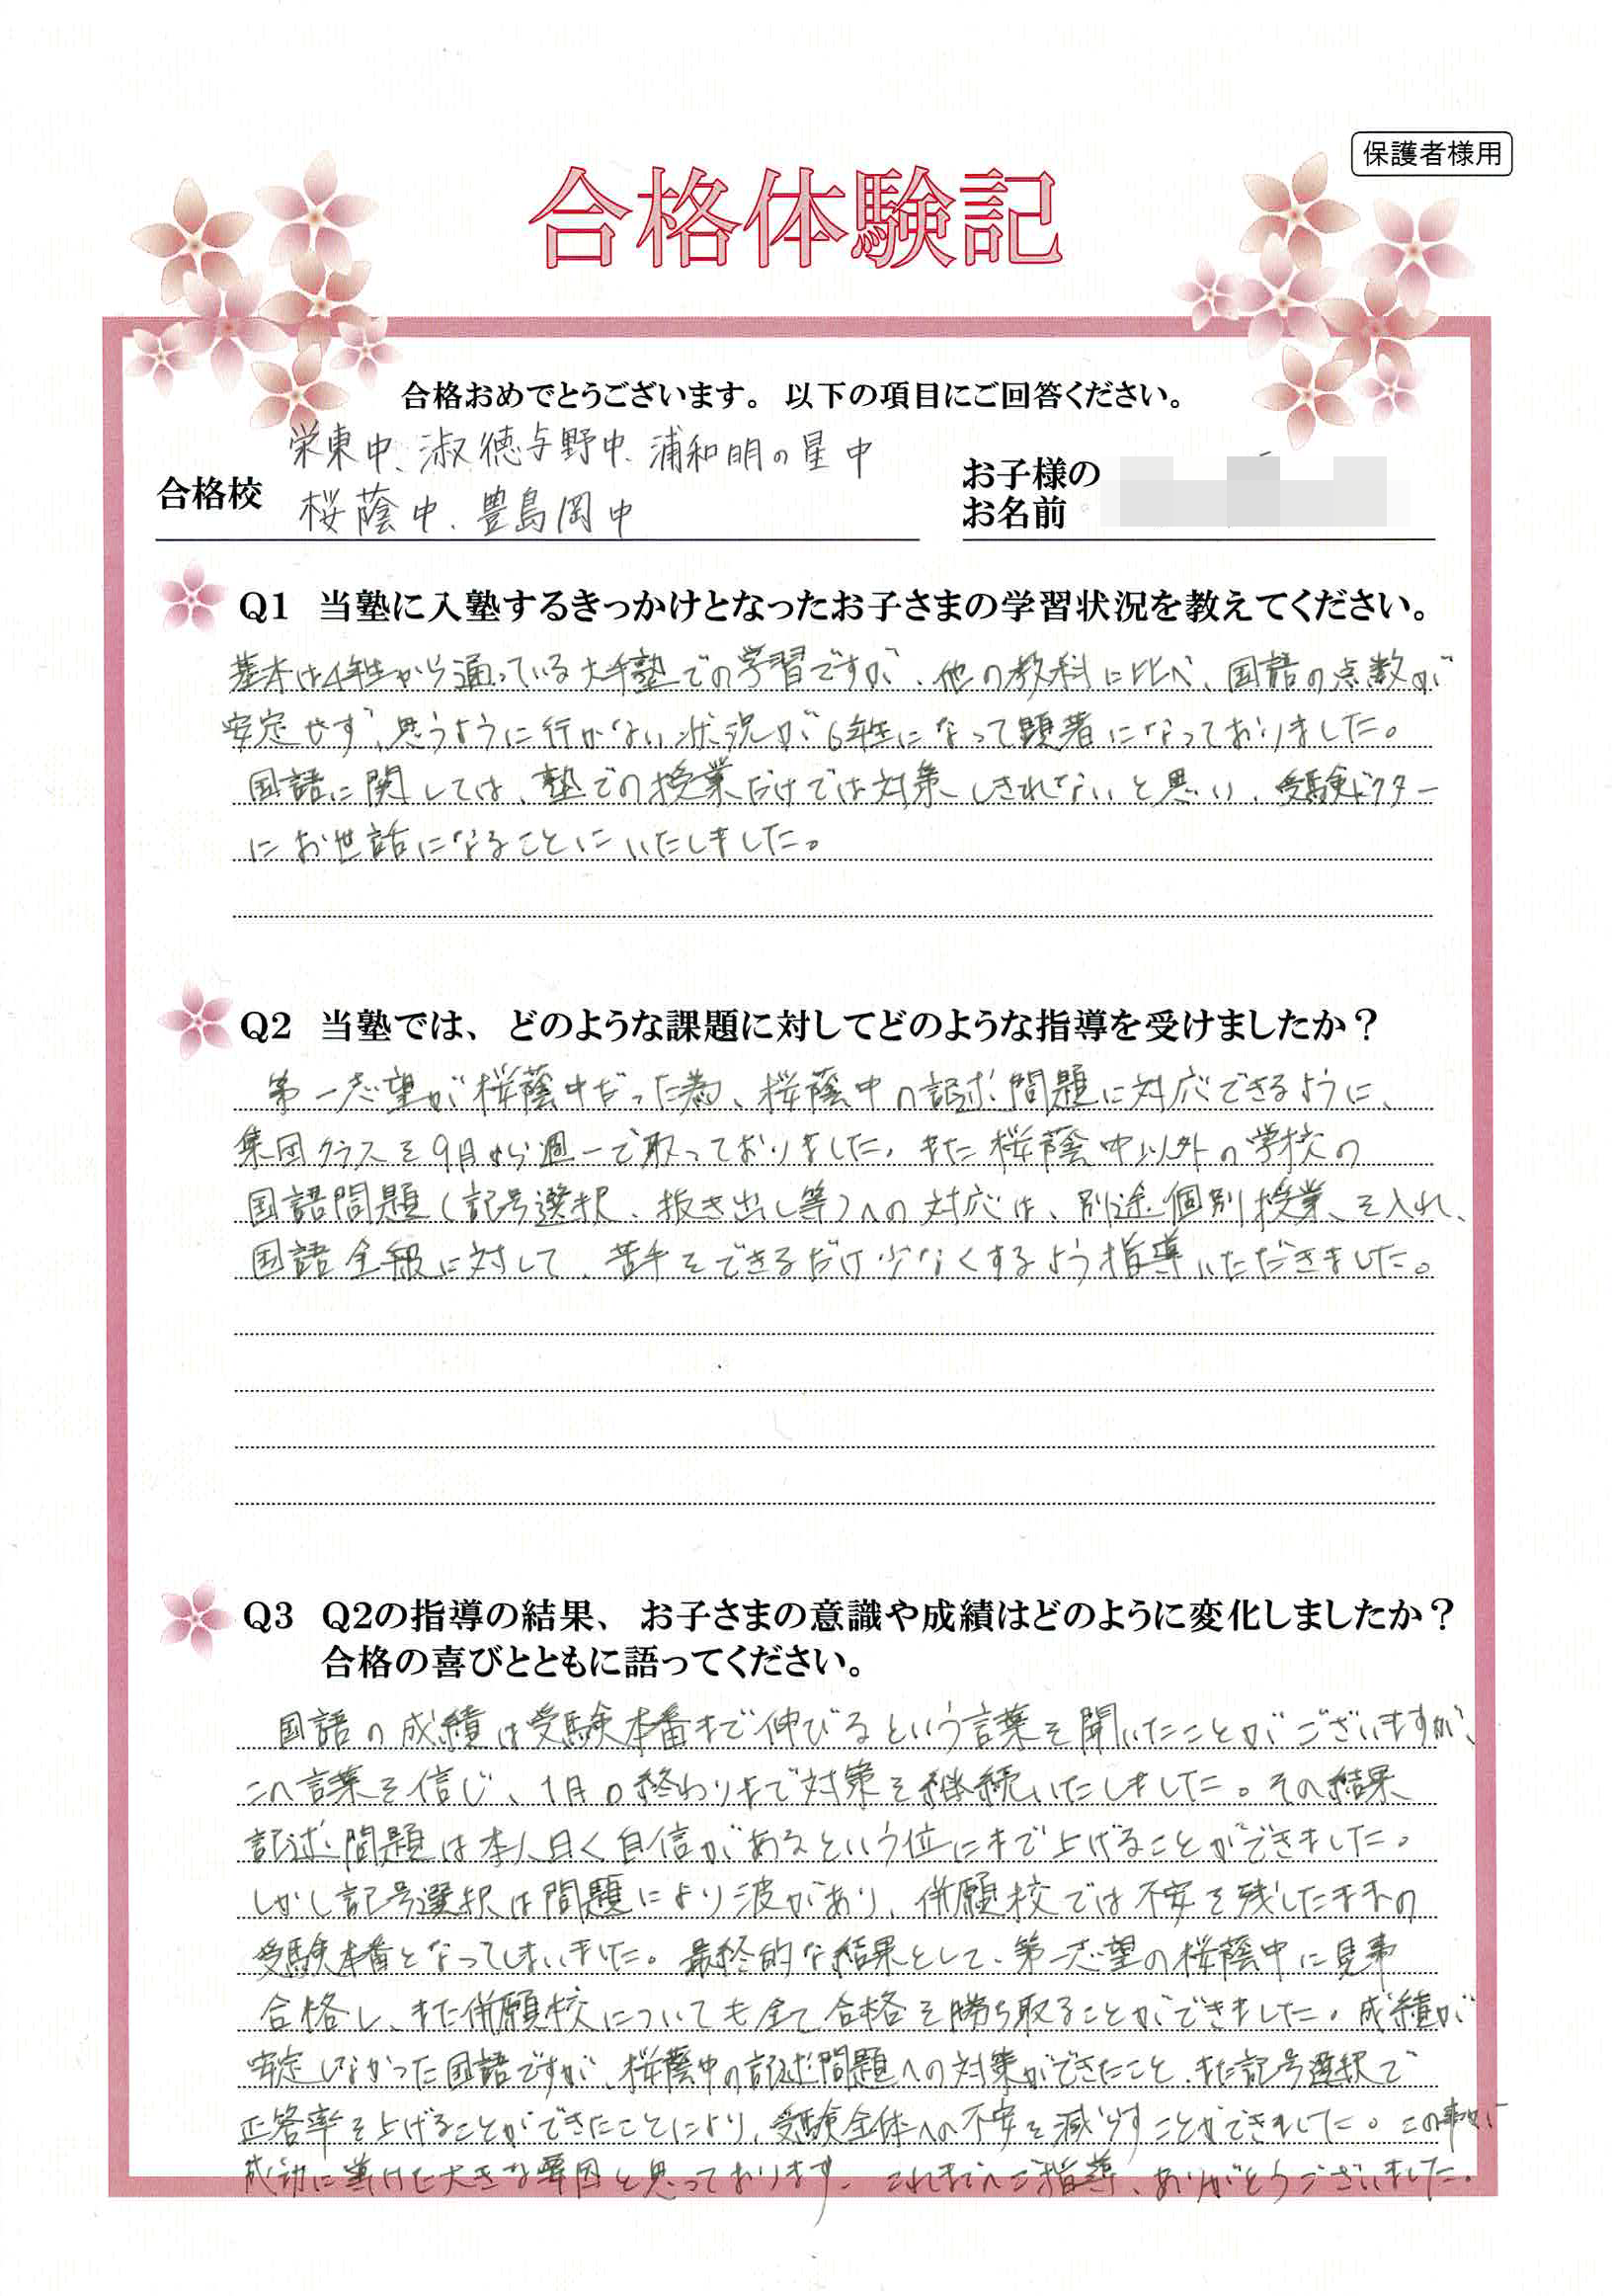 保護者様用
合格体験記
合格おめでとうございます。 以下の項目にご回答ください。
合格校
栄東中、淑徳与野中、浦和明の星中
桜蔭中、豊島岡中
お子様の
お名前
Q1 当塾に入塾するきっかけとなったお子さまの学習状況を教えてください。
基本は4年生から通っている大手塾での学習ですが、他の教科に比べ、国語の点数が
安定せず、思うように行かない状況が6年生になって顕著になっておりました。
国語に関しては、塾での授業だけでは対策しきれないと思い、受験ドクター
にお世話になることにいたしました。
Q2 当塾では、どのような課題に対してどのような指導を受けましたか？
第一志望が桜蔭中だった為、桜蔭中の記述問題に対応できるように、
集団クラスを9月から週一で取っておりました。また桜蔭中以外の学校の
国語問題（記号選択、抜き出し等）への対応は、別途個別授業を入れ、
国語全般に対して、苦手をできるだけ少なくするよう指導いただきました。
Q3 Q2の指導の結果、お子さまの意識や成績はどのように変化しましたか？
合格の喜びとともに語ってください。
国語の成績は受験本番まで伸びるという言葉を聞いたことがございますが、
この言葉を信じ、1月の終わりまで対策を継続いたしました。その結果
記述問題は本人曰く自信があるという位にまで上げることができました。
しかし記号選択は問題により波があり、併願校では不安を残したままの
受験本番となってしまいました。最終的な結果として、第一志望の桜蔭中に見事
合格し、また併願校についても全て合格を勝ち取ることができました。成績が
安定しなかった国語ですが、桜蔭中の記述問題への対策ができたこと、また記号選択で
正答率を上げることができたことにより、受験全体への不安を減らすことができました。この事が
成功に導けた大きな要因と思っております。これまでのご指導、ありがとうございました。